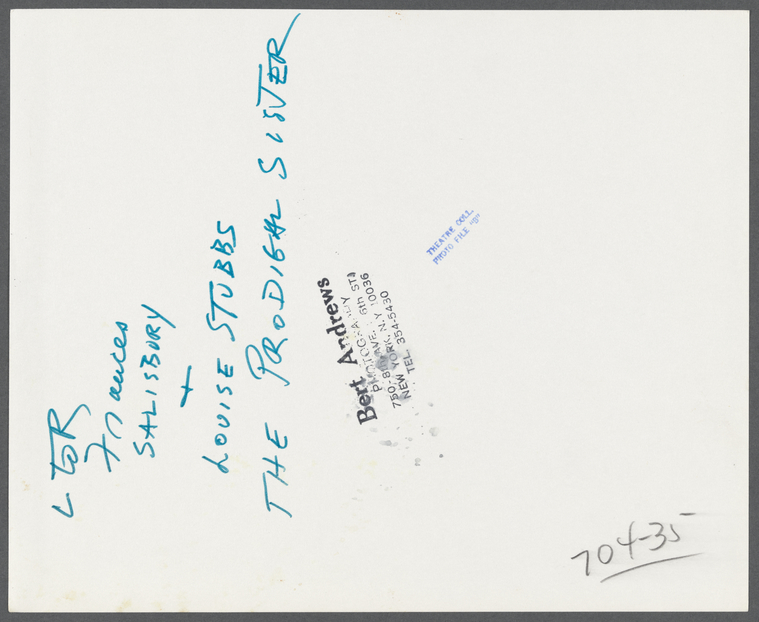 L to R
Frances
SALISBURY
+
LOUISE STUBBS
THE PRODIGAL SISTER
Bert Andrews
PHOTOGRAPHY
750-8 AVE. 6th ST)
NEW YORK, N.Y. 10036
TEL. 354-5430
THEATRE COLL.
PHOTO FILE "B"
704-35